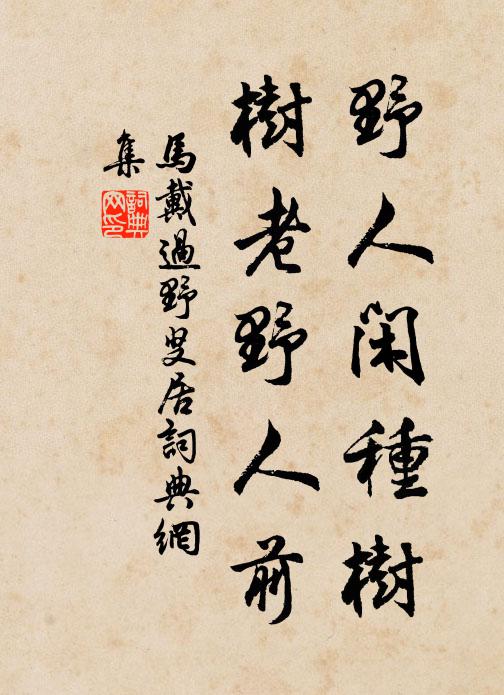 野人閑種樹
樹老野人前
馬戴過野叟居詞典網
集
詞典
网印